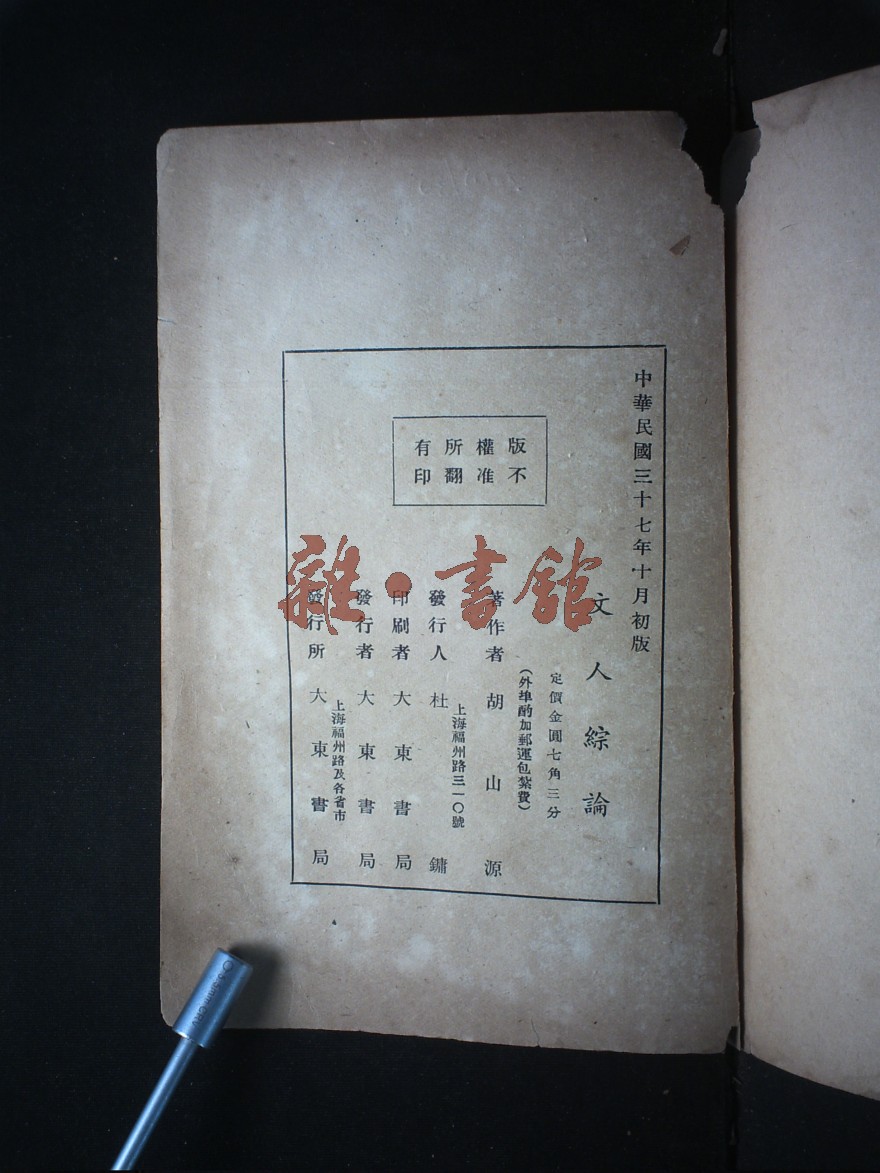 中華民國三十七年十月初版
文人綜論
定價金圓七角三分
(外埠酌加郵運包紮費)
版權所有
不准翻印
著作者 胡山源
上海福州路三一〇號
發行人 杜鏞
印刷者 大東書局
發行者 大東書局
上海福州路及各省市
發行所 大東書局
雜·書館